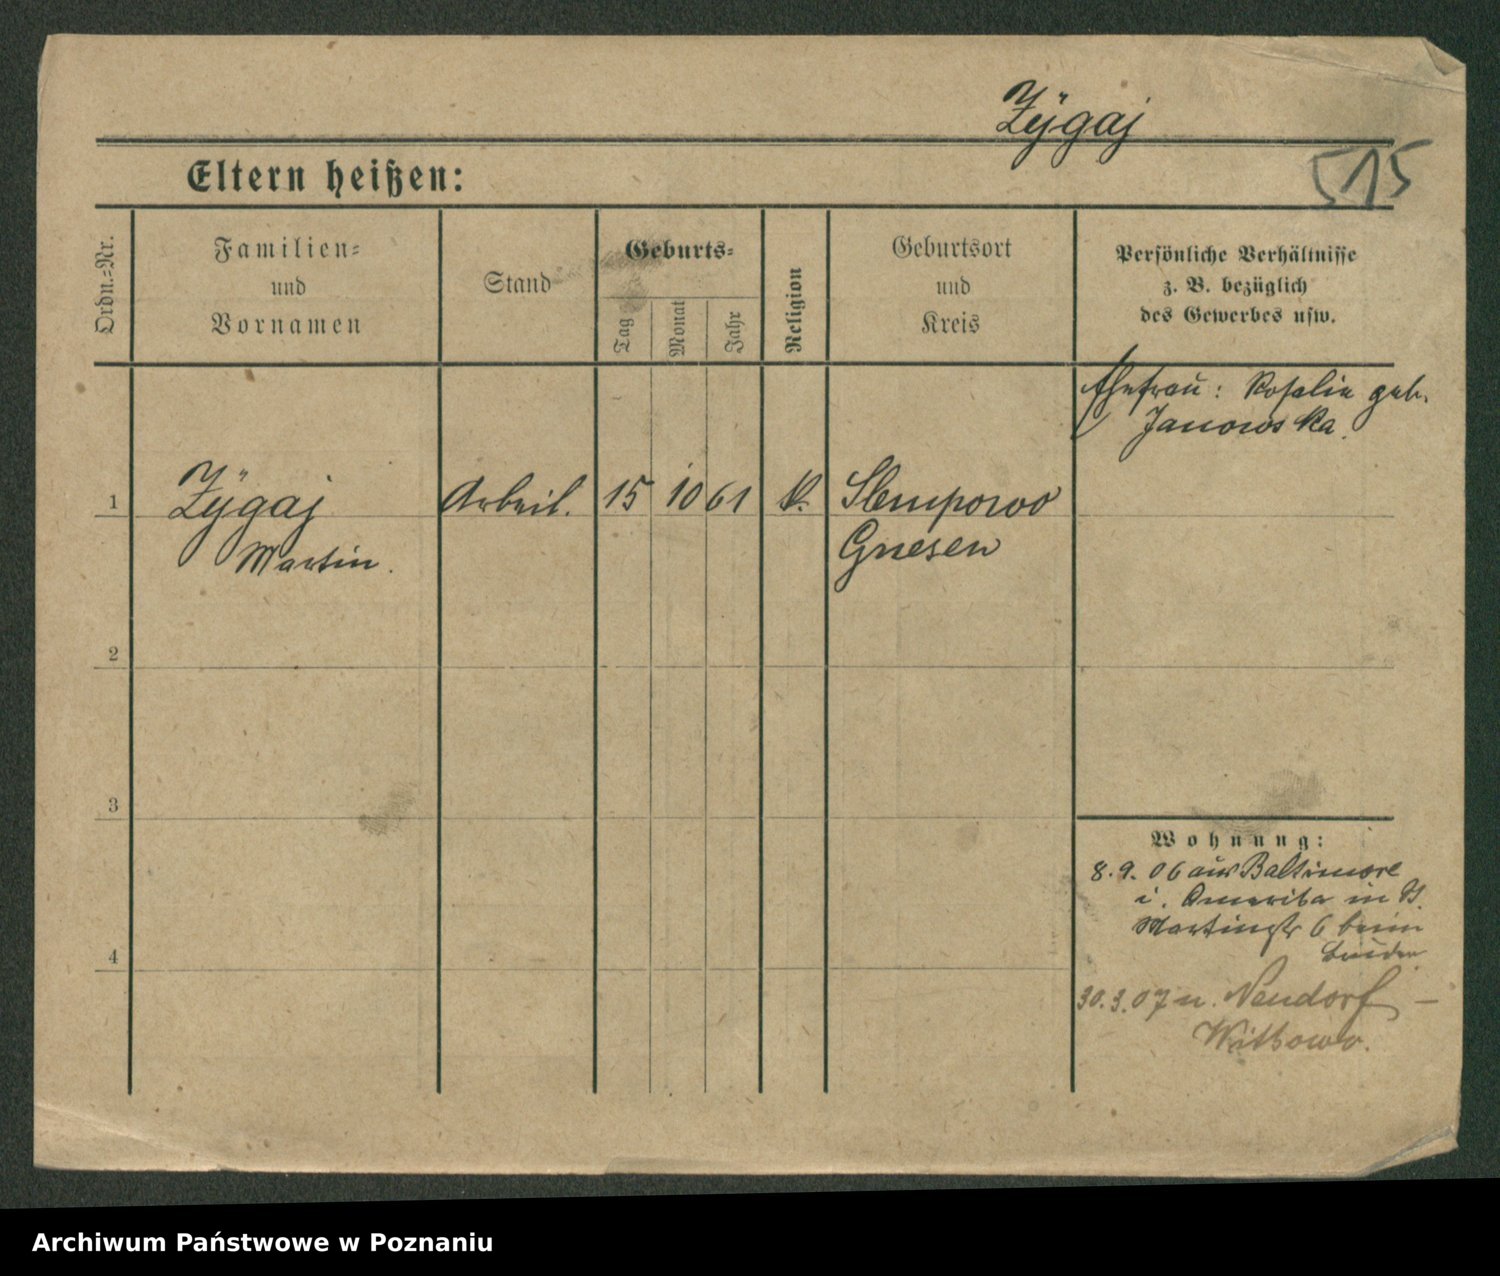 Zÿgaj
515
Eltern heißen:
Ordn.=Nr.
Familien=
und
Vornamen
Stand
Geburts=
Tag
Monat
Jahr
Religion
Geburtsort
und
Kreis
Persönliche Verhältnisse
z. B. bezüglich
des Gewerbes usw.
Ehefrau: Rosalie geb.
Janowska.
1
Zÿgaj
Martin.
Arbeit.
15
10
61
k.
Slemporoo
Gnesen
2
3
4
Wohnung:
8.9.06 aus Baltimore
i. Amerika in
Martinstr 6 beim
Bruder.
30.3.07 n. Neudorf –
Witkowo.
Archiwum Państwowe w Poznaniu